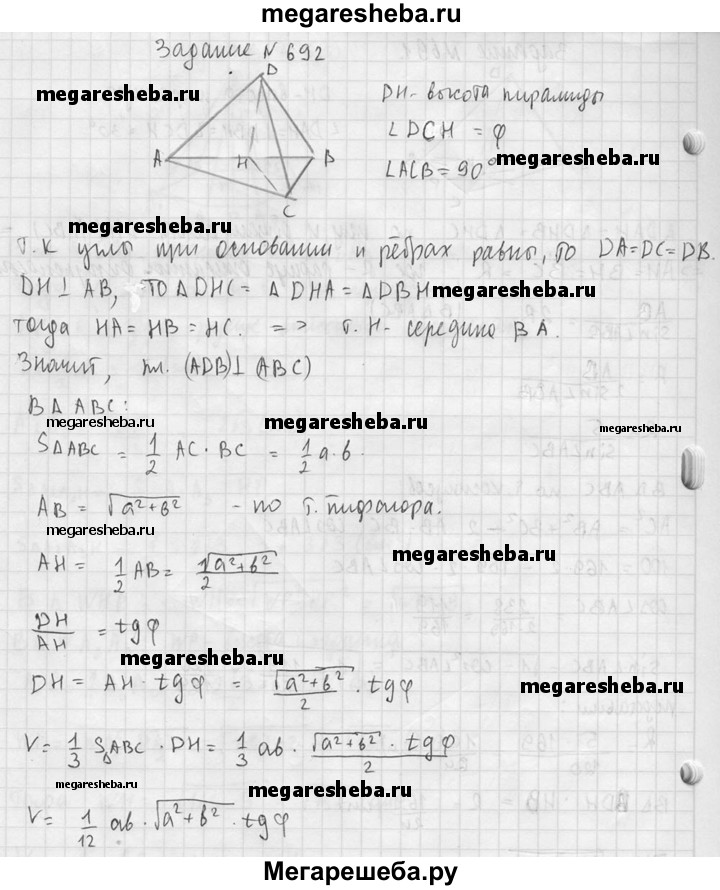 megaresheba.ru
Задание N 692
D
megaresheba.ru
DH - высота пирамиды
∠DCH = φ
A H B
∠ACB = 90°
megaresheba.ru
C
megaresheba.ru
Т.К углы при основании и рёбрах равны, то DA=DC=DB.
DH⊥AB, то ΔDHC = ΔDHA = ΔDBH
megaresheba.ru
тогда HA = HB = HC. => т. H - середина BA.
Значит, пл. (ADB)⊥(ABC)
В Δ ABC:
megaresheba.ru
megaresheba.ru
SΔABC = 1/2 AC · BC = 1/2 a·b.
AB = √a²+b² - по т. пифагора.
megaresheba.ru
megaresheba.ru
AH = 1/2 AB = √a²+b²/2
DH/AH = tgφ
megaresheba.ru
DH = AH · tgφ = √a²+b²/2 · tgφ
megaresheba.ru
V = 1/3 SΔABC · DH = 1/3 ab · √a²+b² · tgφ/2
megaresheba.ru
megaresheba.ru
V = 1/12 ab · √a²+b² · tgφ
megaresheba.ru
Мегарешеба.ру